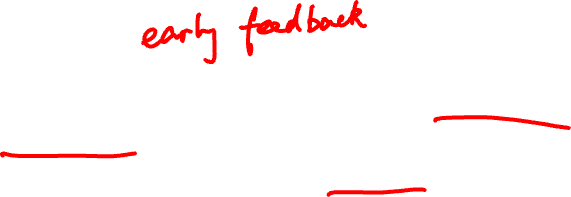 early feedback